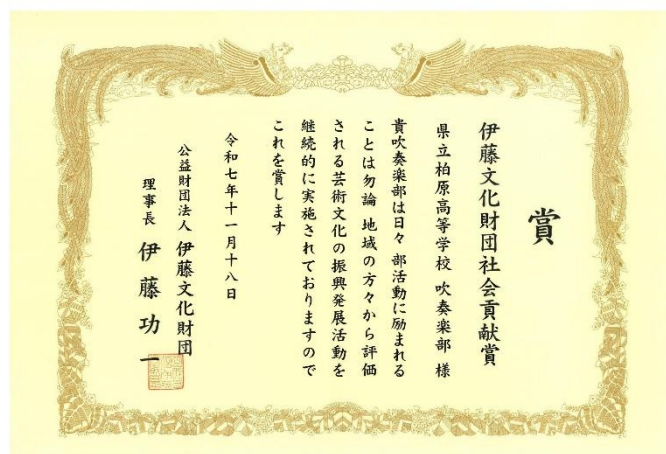 賞
伊藤文化財団社会貢献賞
県立柏原高等学校 吹奏楽部 様
貴吹奏楽部は日々 部活動に励まれる
ことは勿論 地域の方々から評価
される芸術文化の振興発展活動を
継続的に実施されておりますので
これを賞します
令和七年十一月十八日
公益財団法人 伊藤文化財団
理事長 伊藤功一